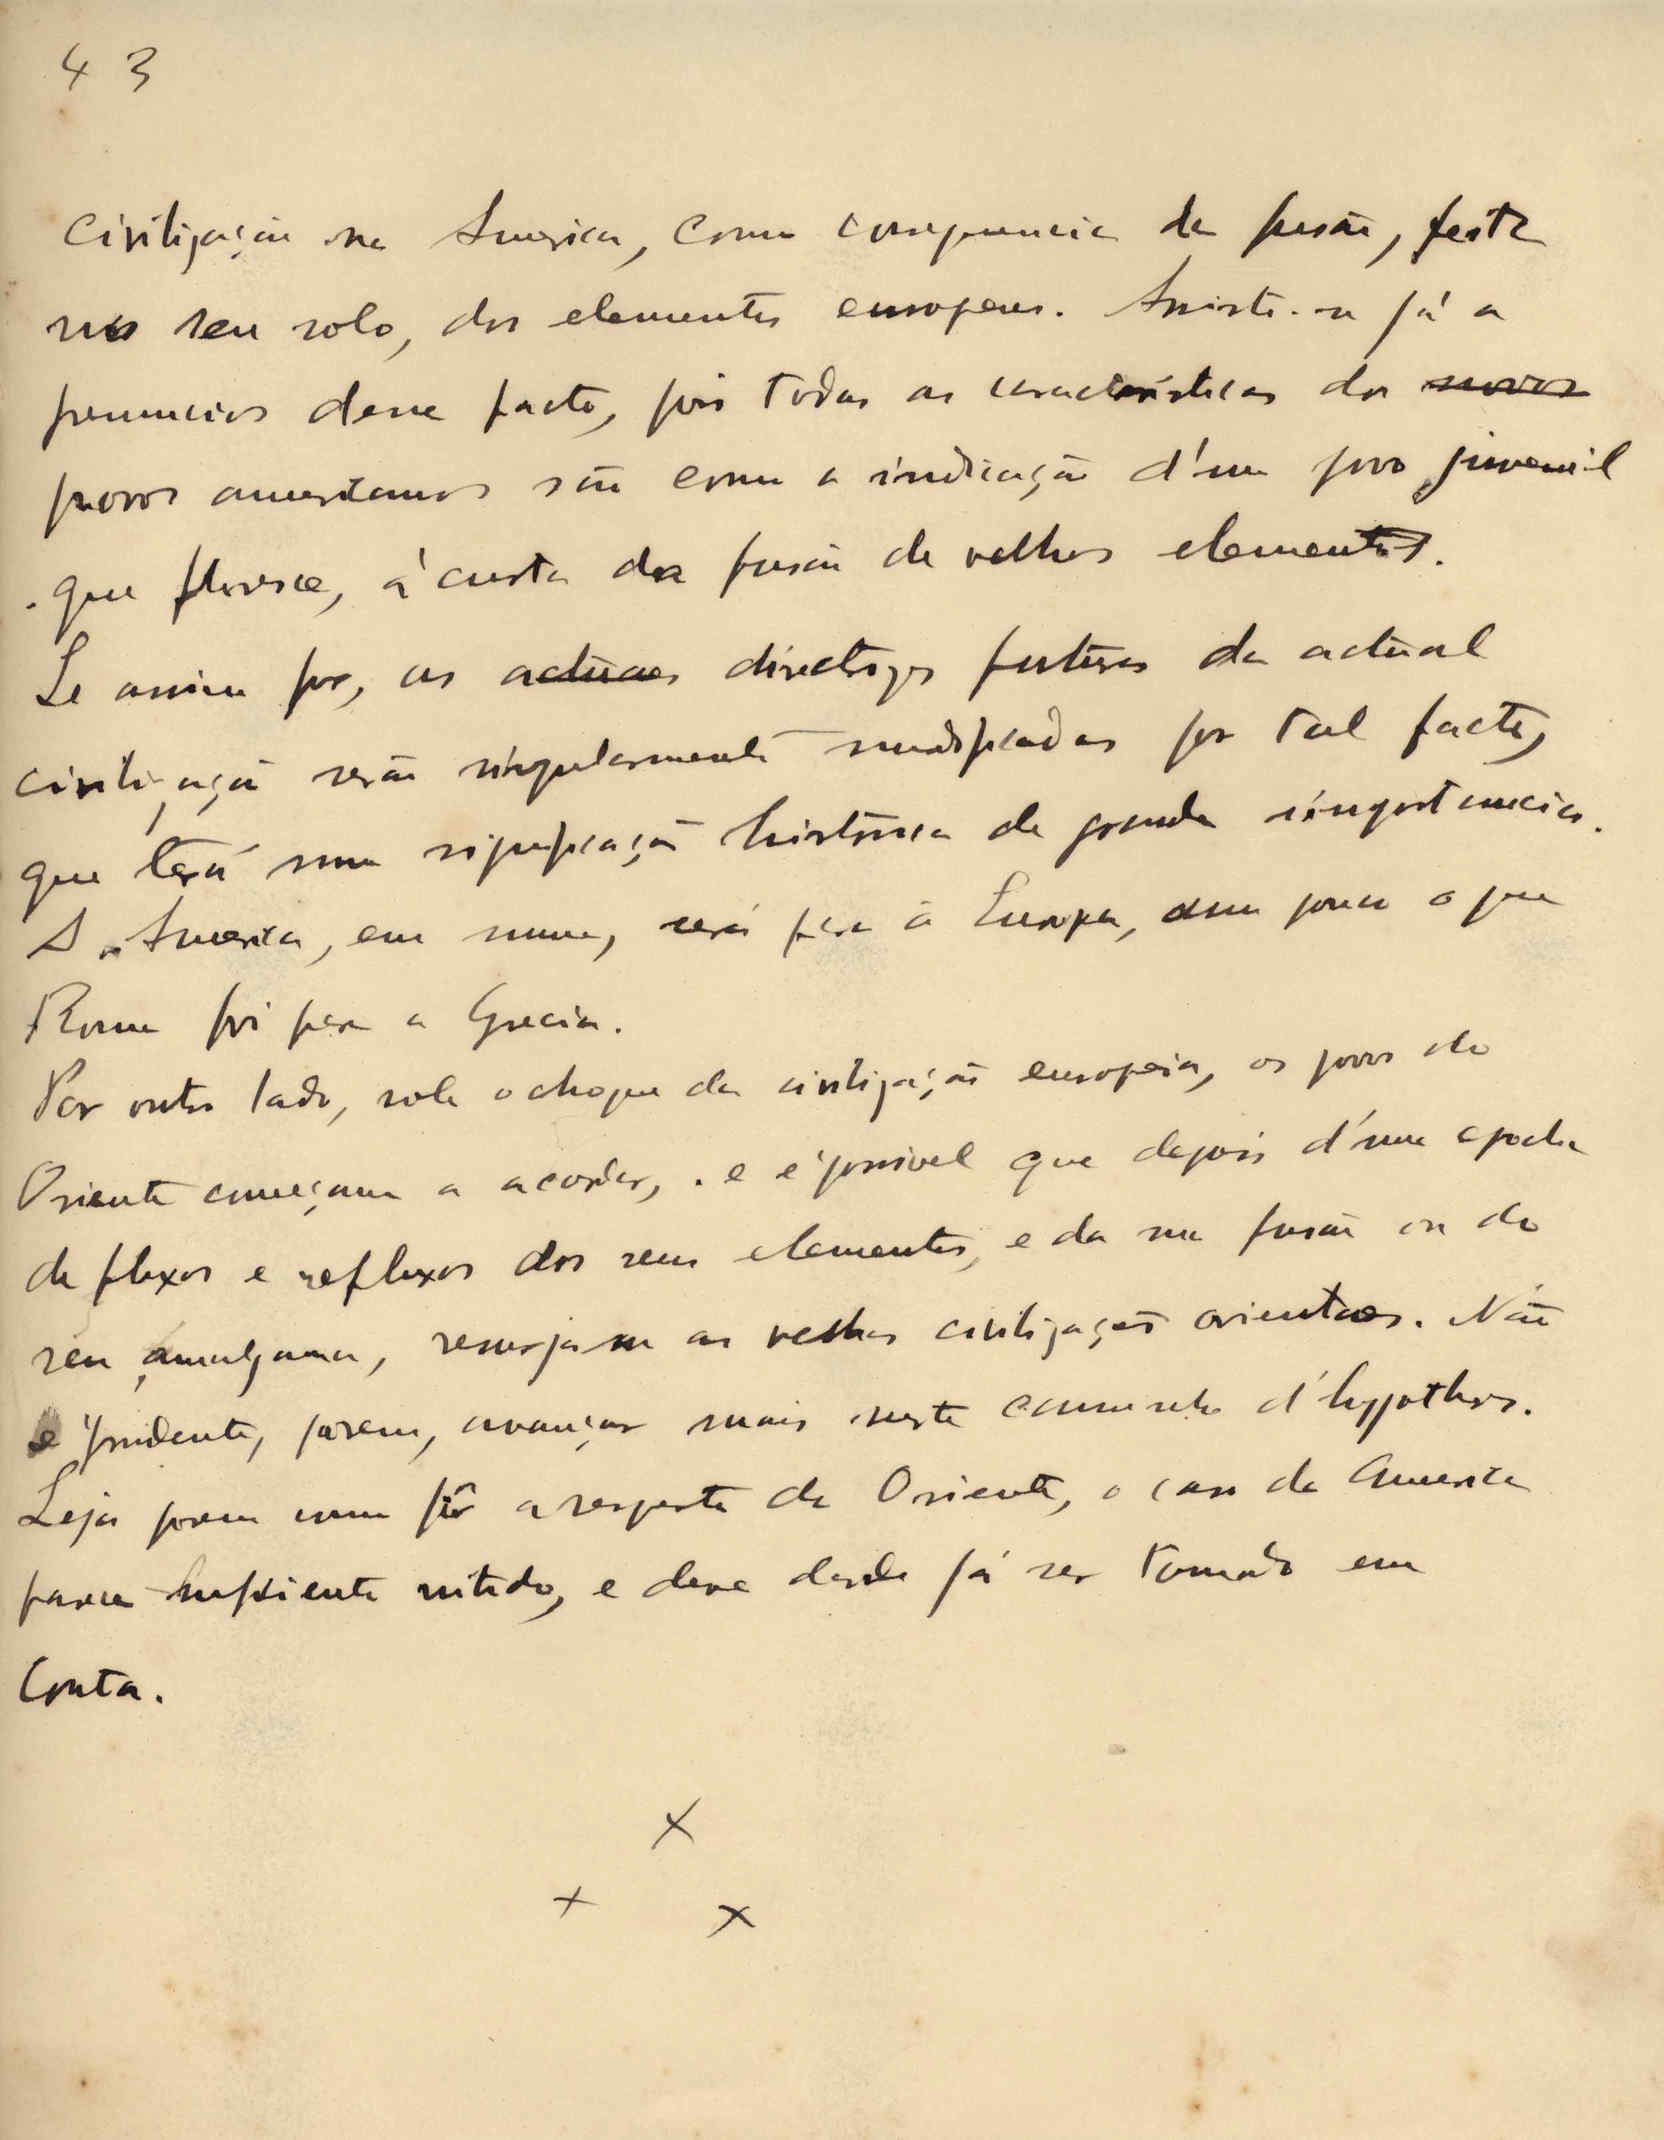 43
civilização na America, como consequencia da fusão, feita
no seu solo, dos elementos europeus. Assiste-se já a
prenuncios desse facto, pois todas as caracteristicas dos novos
povos americanos são como a indicação d'um povo juvenil
que floresce, á custa da fusão de velhos elementos.
Se assim fôr, as actuaes directrizes futuras da actual
civilização serão singularmente modificadas por tal facto,
que terá uma significação historica de grande importancia.
A America, em summa, será para a Europa, um pouco o que
Roma foi para a Grecia.
Por outro lado, sob o choque da civilização europeia, os povos do
Oriente começam a acordar, e é possivel que depois d'uma epocha
de fluxos e refluxos dos seus elementos, e da sua fusão ou do
seu amalgama, resurjam as velhas civilizações orientaes. Não
é prudente, porem, avançar mais neste caminho d'hypotheses.
Seja porem como fôr a respeito do Oriente, o caso da America
parece sufficiente nitido, e deve desde já ser tomado em
conta.
x
x x